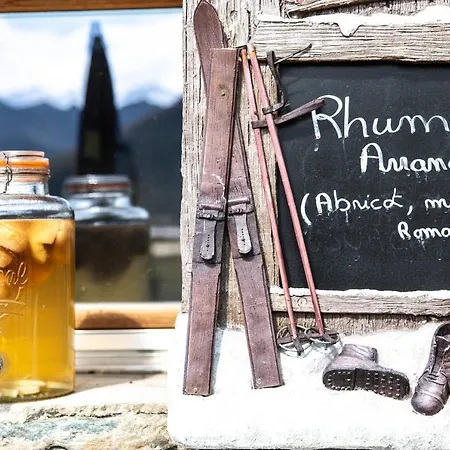 Rhum
Arran
(Abricot, m
Roma